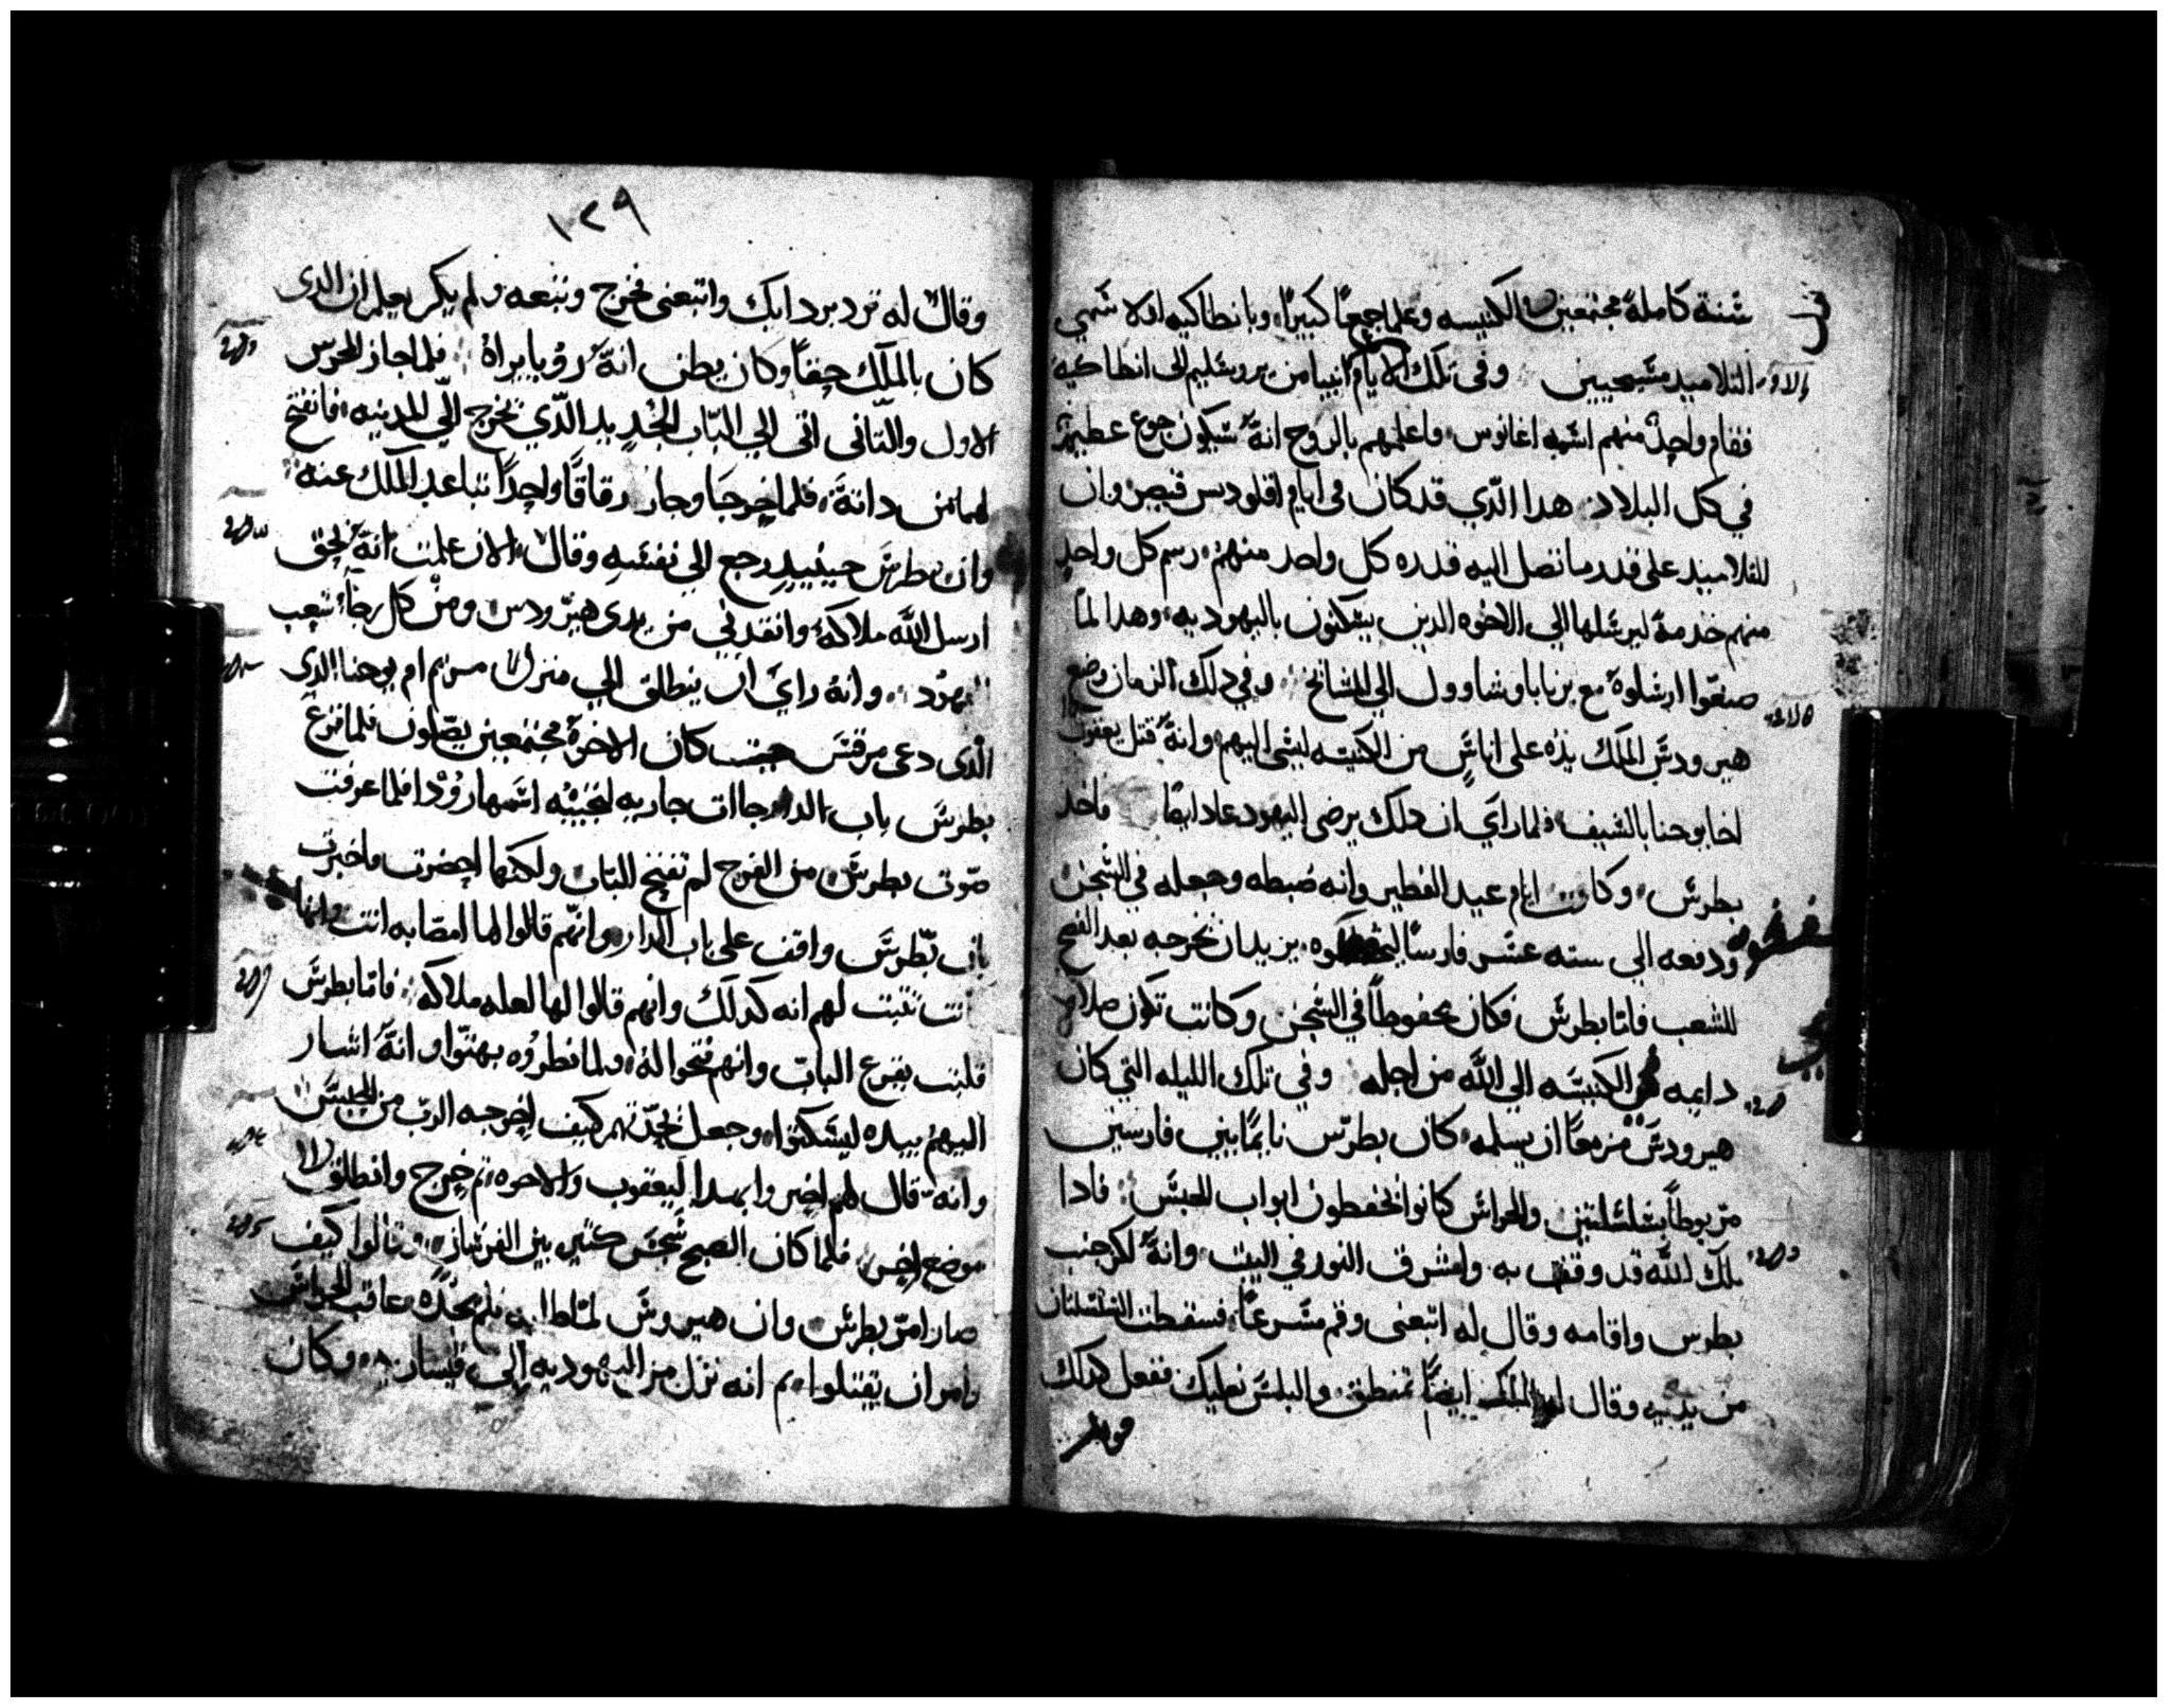 سنة كاملة مجتمعين في الكنيسه وعلما جمعًا كبيرًا وبانطاكيه اولا سمي
التلاميد مسيحيين وفي تلك الايام اتى انبيا من يروشليم الى انطاكيه
فقام واحدٌ منهم اسمه اغابوس واعلمهم بالروح انهُ سيكون جوع عظيم
في كل البلاد هدا الدي قد كان في ايام اقلوديس قيصر وان
التلاميد على قدر ما تصل اليه قدره كل واحد منهم رسم كل واحدٍ
منهم خدمة ليرسلها الى الاخوه الدين يسكنون باليهوديه وهدا لما
صنعوا ارسلوهُ مع برنابا وشاوول الى المشايخ وفي دلك الزمان وضع
هيرودس الملك يدهُ على اناسٍ من الكنيسه ليسي اليهم وانهُ قتل يعقوب
اخا يوحنا بالسيف فلما رأي ان دلك يرضى اليهود عاد ايضًا فاخد
بطرس وكانت ايام عيد الفطير وانه ضبطه وجعله في السجن
ودفعه الى سته عشر فارسًا يريد ان يخرجه بعد الفصح
للشعب فاما بطرس فكان محفوظًا في السجن وكانت تكون صلاة
دايمه من الكنيسه الى الله من اجله وفي تلك الليله التي كان
هيرودس مزمعًا ان يسلمه كان بطرس نايمًا بين فارسين
مربوطًا بسلسلتين والحراس كانوا يحفظون ابواب الحبس فادا
ملاك الله قد وقف به واشرق النور في البيت وانهُ لكز جنب
بطرس واقامه وقال له اتبعني وقم مسرعًا فسقطت السلسلتان
من يديه وقال له الملاك ايضًا تمنطق والبس نعليك ففعل كدلك
وقال
١٢٩
وقال له تردى بردايك واتبعنى فخرج وتبعه ولم يكن يعلم ان الدى
كان بالملاك حقًا وكان يظن انهُ رؤيا يراهُ فلما جاز الحرس
الاول والتاني اتى الي الباب الحديد الدي يخرج الي المدينه فانفتح
لهما من داته فلما خرجا وجازا زقاقًا واحدًا تباعد الملاك عنه
وان بطرس حينيدٍ رجع الي نفسه وقال الان علمت انهُ بحق
ارسل الله ملاكه وانقدني من يدي هيرودس ومن كل رجا شعب
اليهود وانهُ رأي ان ينطلق الي منزل مريم ام يوحنا الدى
الدى دعى مرقس حيث كان الاخوة مجتمعين يصلون فلما قرع
بطرس باب الدار جاات جاريه لتجيبه اسمها رودا فلما عرفت
صوت بطرس من الفرح لم تفتح الباب ولكنها احضرت واخبرت
بان بطرس واقف على باب الدار وانهم قالوا لها امصابه انت وانها
كانت تثبت لهم انه كدلك وانهم قالوا لها لعله ملاكه فاما بطرس
فلبث يقرع الباب وانهم فتحوا له ولما نظروه بهتوا وانهُ اشار
اليهم بيده ليسكتوا وجعل يحدتهم كيف اخرجه الرب من الحبس
وانه قال لهم اخبروا بهدا ليعقوب والاخوه تم خرج وانطلق الى
موضع اخر فلما كان الصبح سجس كثير بين الفرسان وقالوا كيف
صار امر بطرس وان هيرودس لما طلبه فلم يجده عاقب الحراس
وامر ان يقتلوا تم انه نزل من اليهوديه الى قيساريه وكان